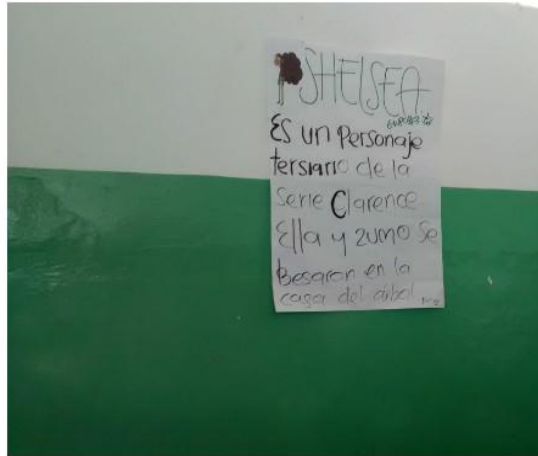 SHELSEA
Es un Personaje
tersiario de la
serie Clarence
Ella y zumo se
Besaron en la
casa del árbol